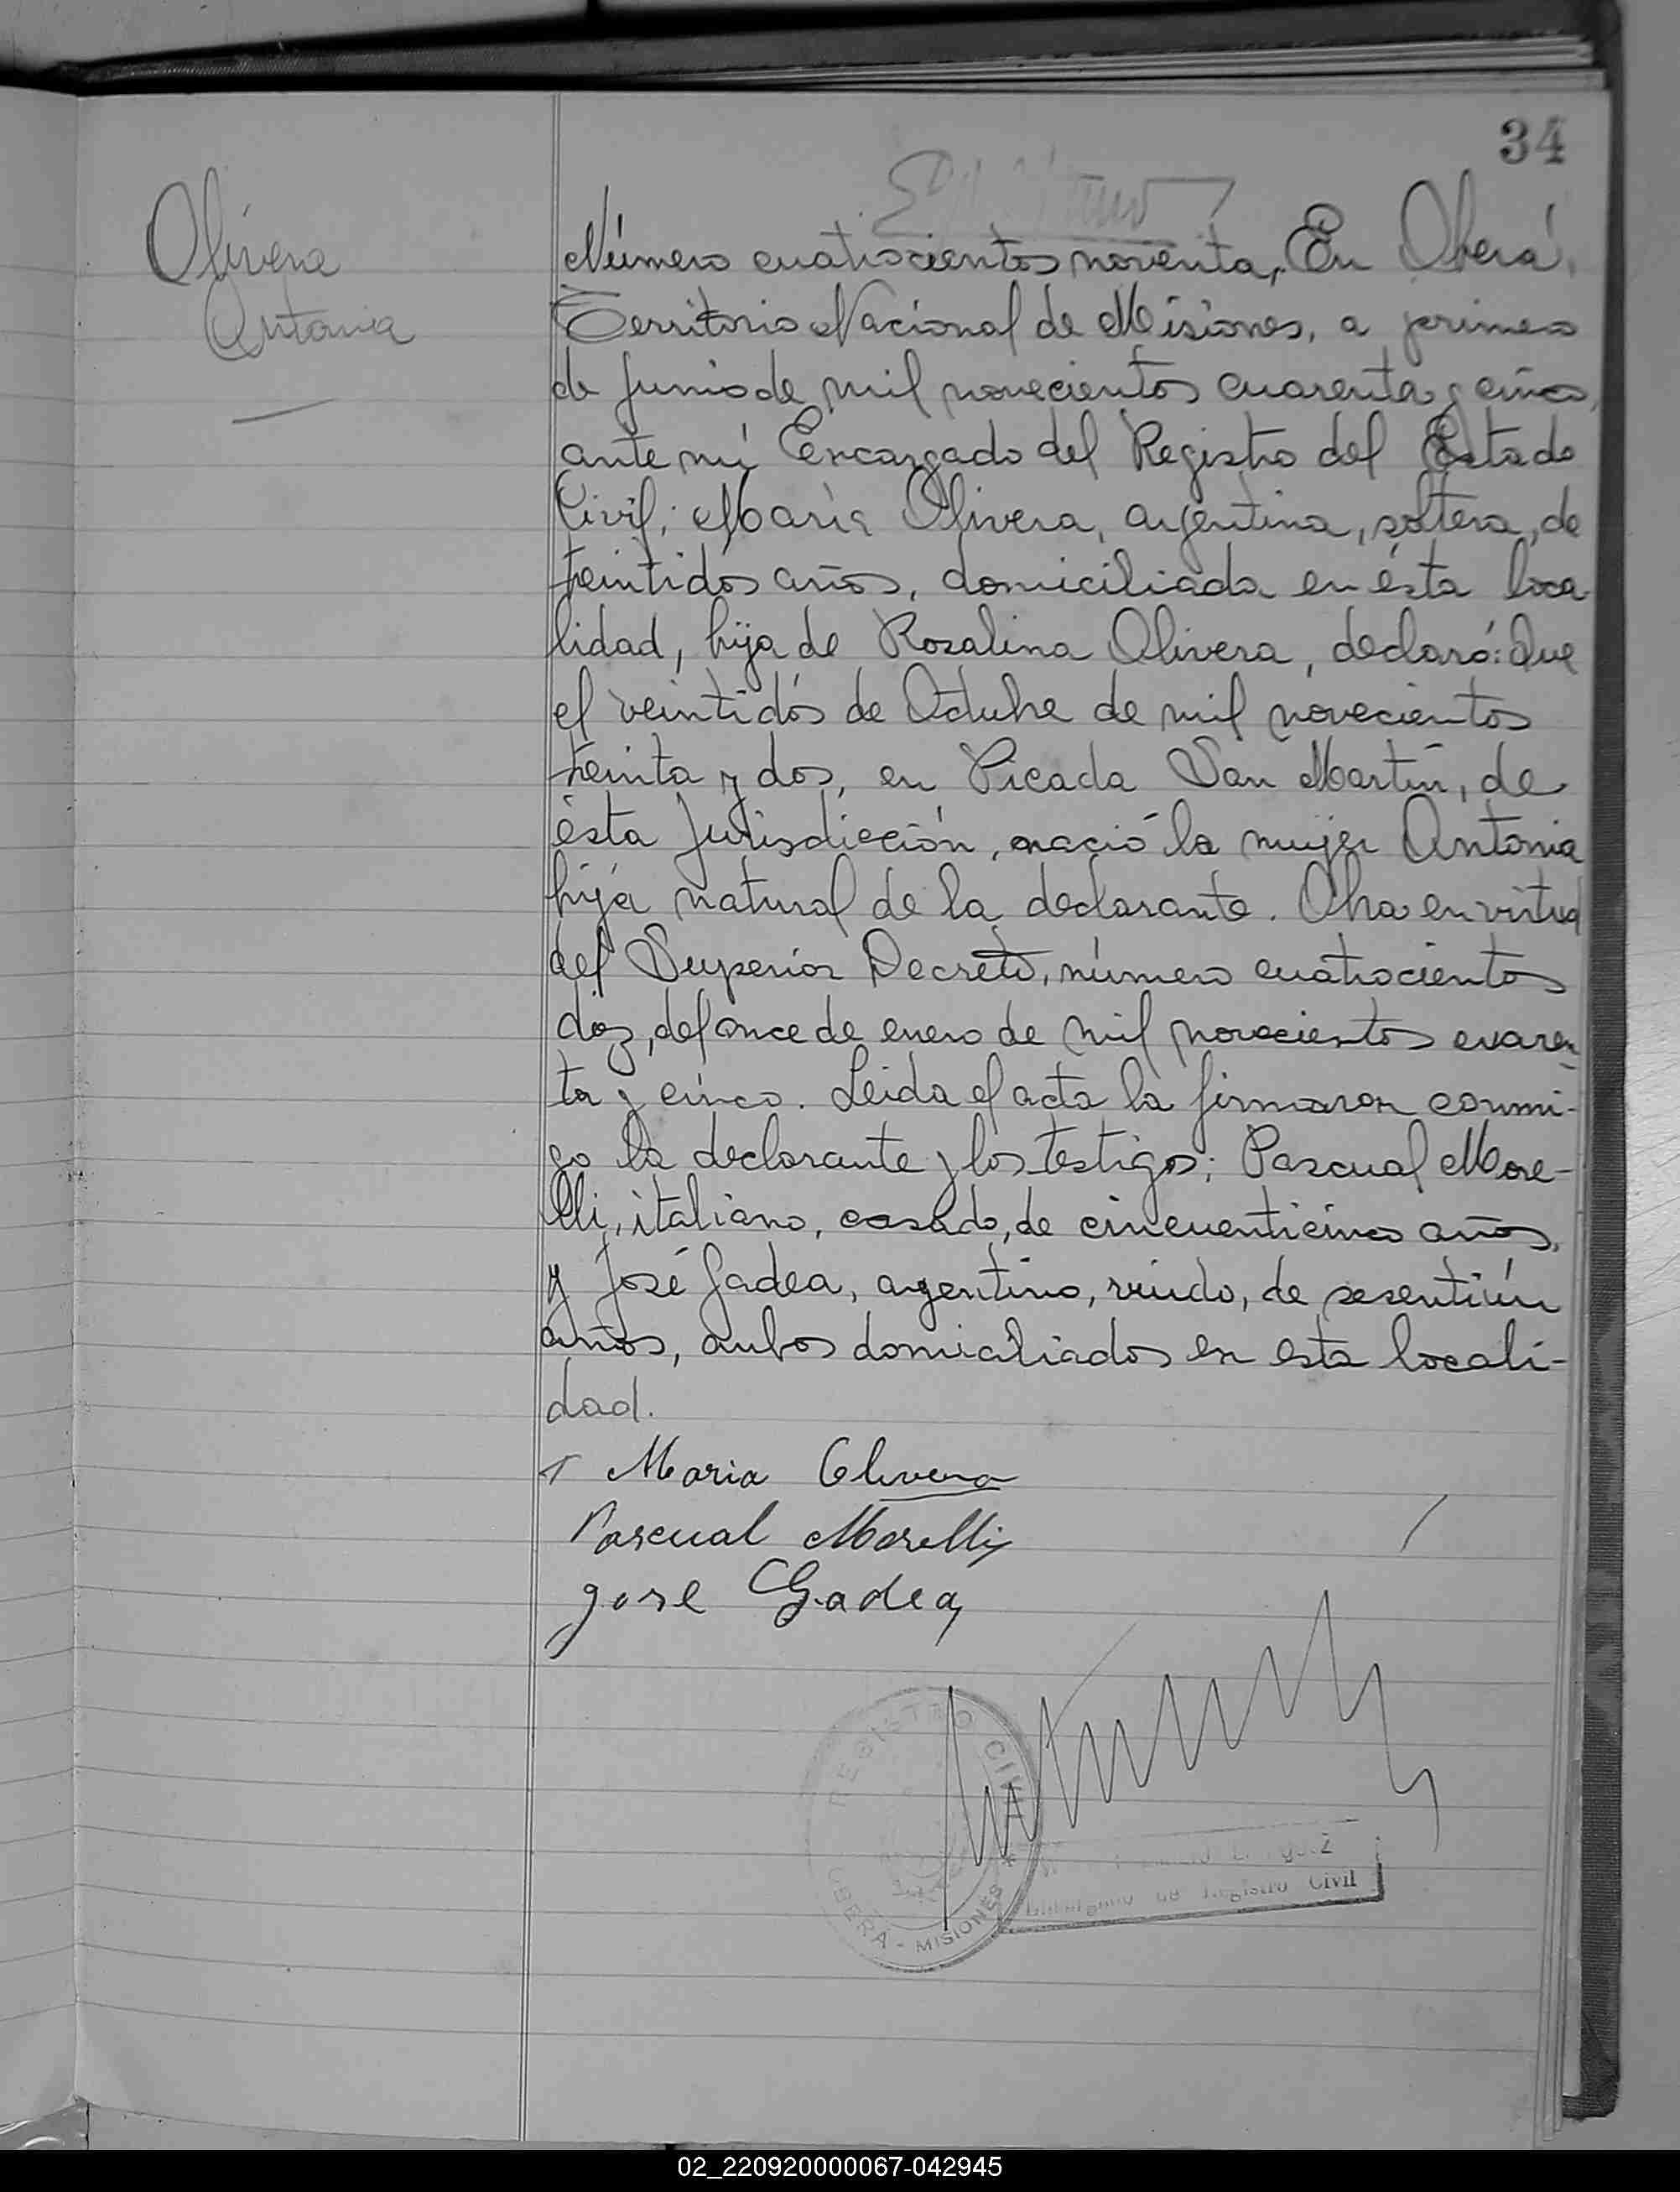 34
Olivera
Antonia
Número cuatrocientos noventa, En Oberá,
Territorio Nacional de Misiones, a primero
de Junio de mil novecientos cuarenta y cinco,
ante mí Encargado del Registro del Estado
Civil; María Olivera, argentina, soltera, de
treintidós años, domiciliada en ésta loca-
lidad, hija de Rosalina Olivera, declaró: Que
el veintidós de Octubre de mil novecientos
treinta y dos, en Picada San Martín, de
ésta Jurisdicción, nació la mujer Antonia
hija natural de la declarante. Obra en virtud
del Superior Decreto, número cuatrocientos
diez, del once de enero de mil novecientos cuaren-
ta y cinco. Leida el acta la firmaron conmi-
go la declarante y los testigos; Pascual More-
lli, italiano, casado, de cincuenticinco años,
y José Gadea, argentino, viudo, de sesentiún
años, ambos domiciliados en esta locali-
dad.
Maria Olivera
Pascual Morelli
Jose Gadea
REGISTRO CIVIL
OBERA - MISIONES
Registro Civil
02_220920000067-042945